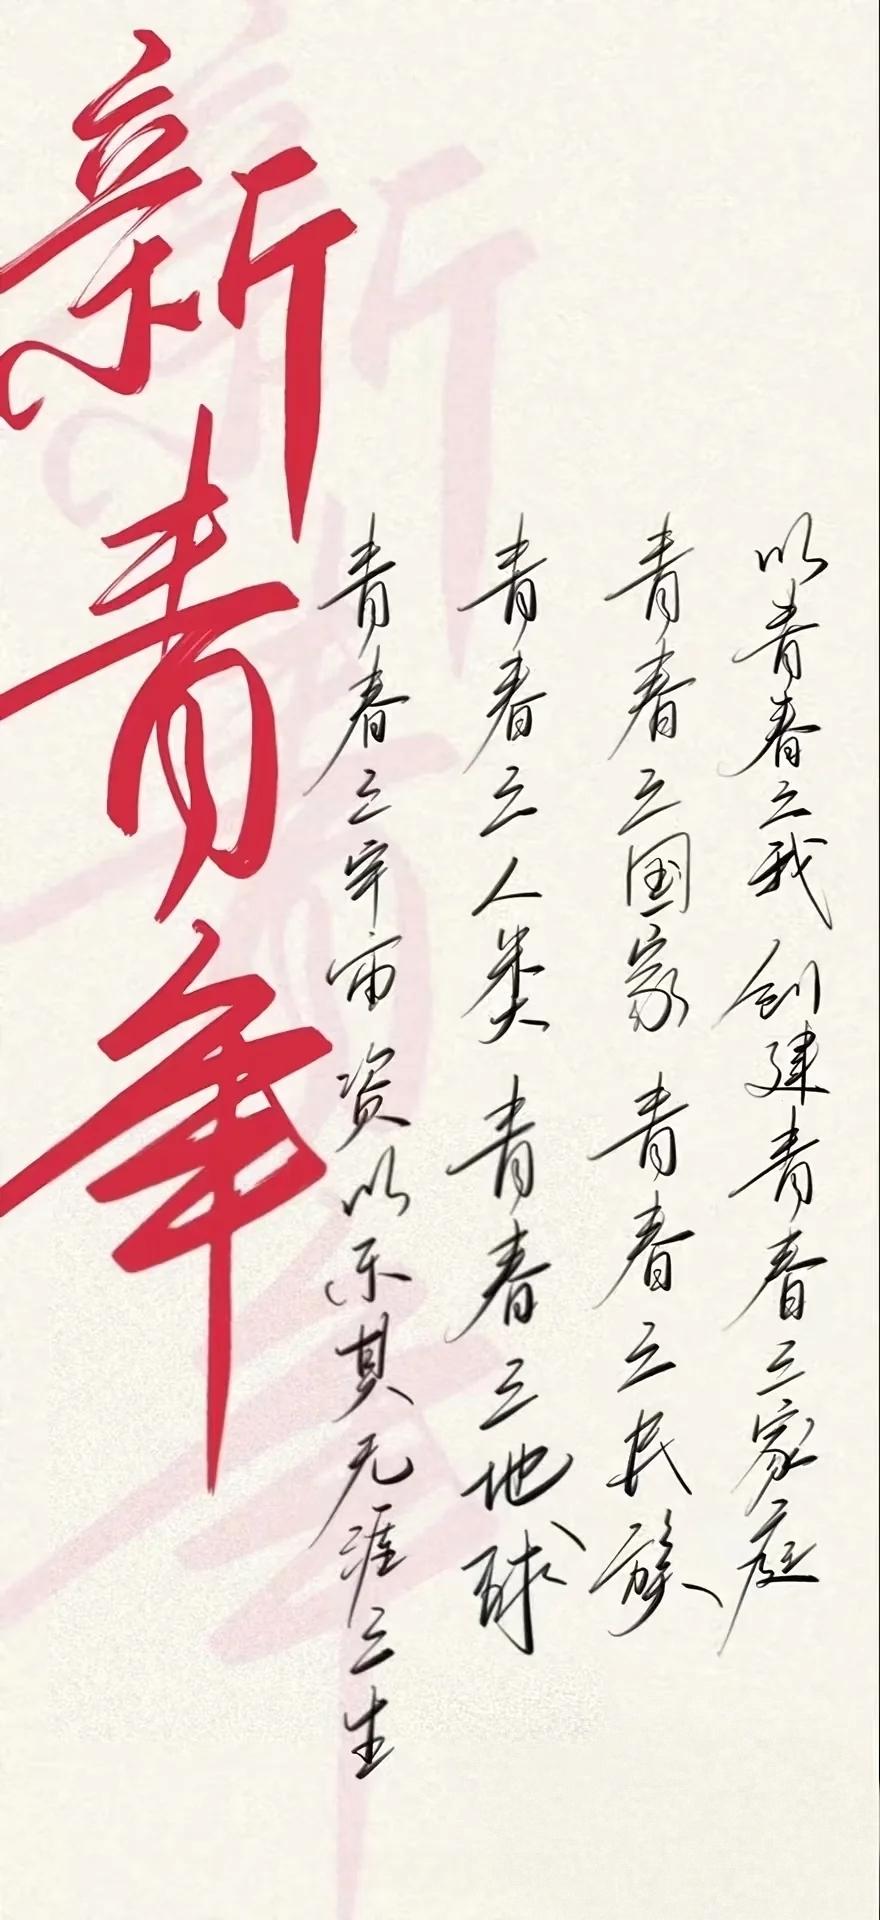 新青年
以青春之我 创建青春之家庭
青春之国家 青春之民族
青春之人类 青春之地球
青春之宇宙 资以乐其无涯之生